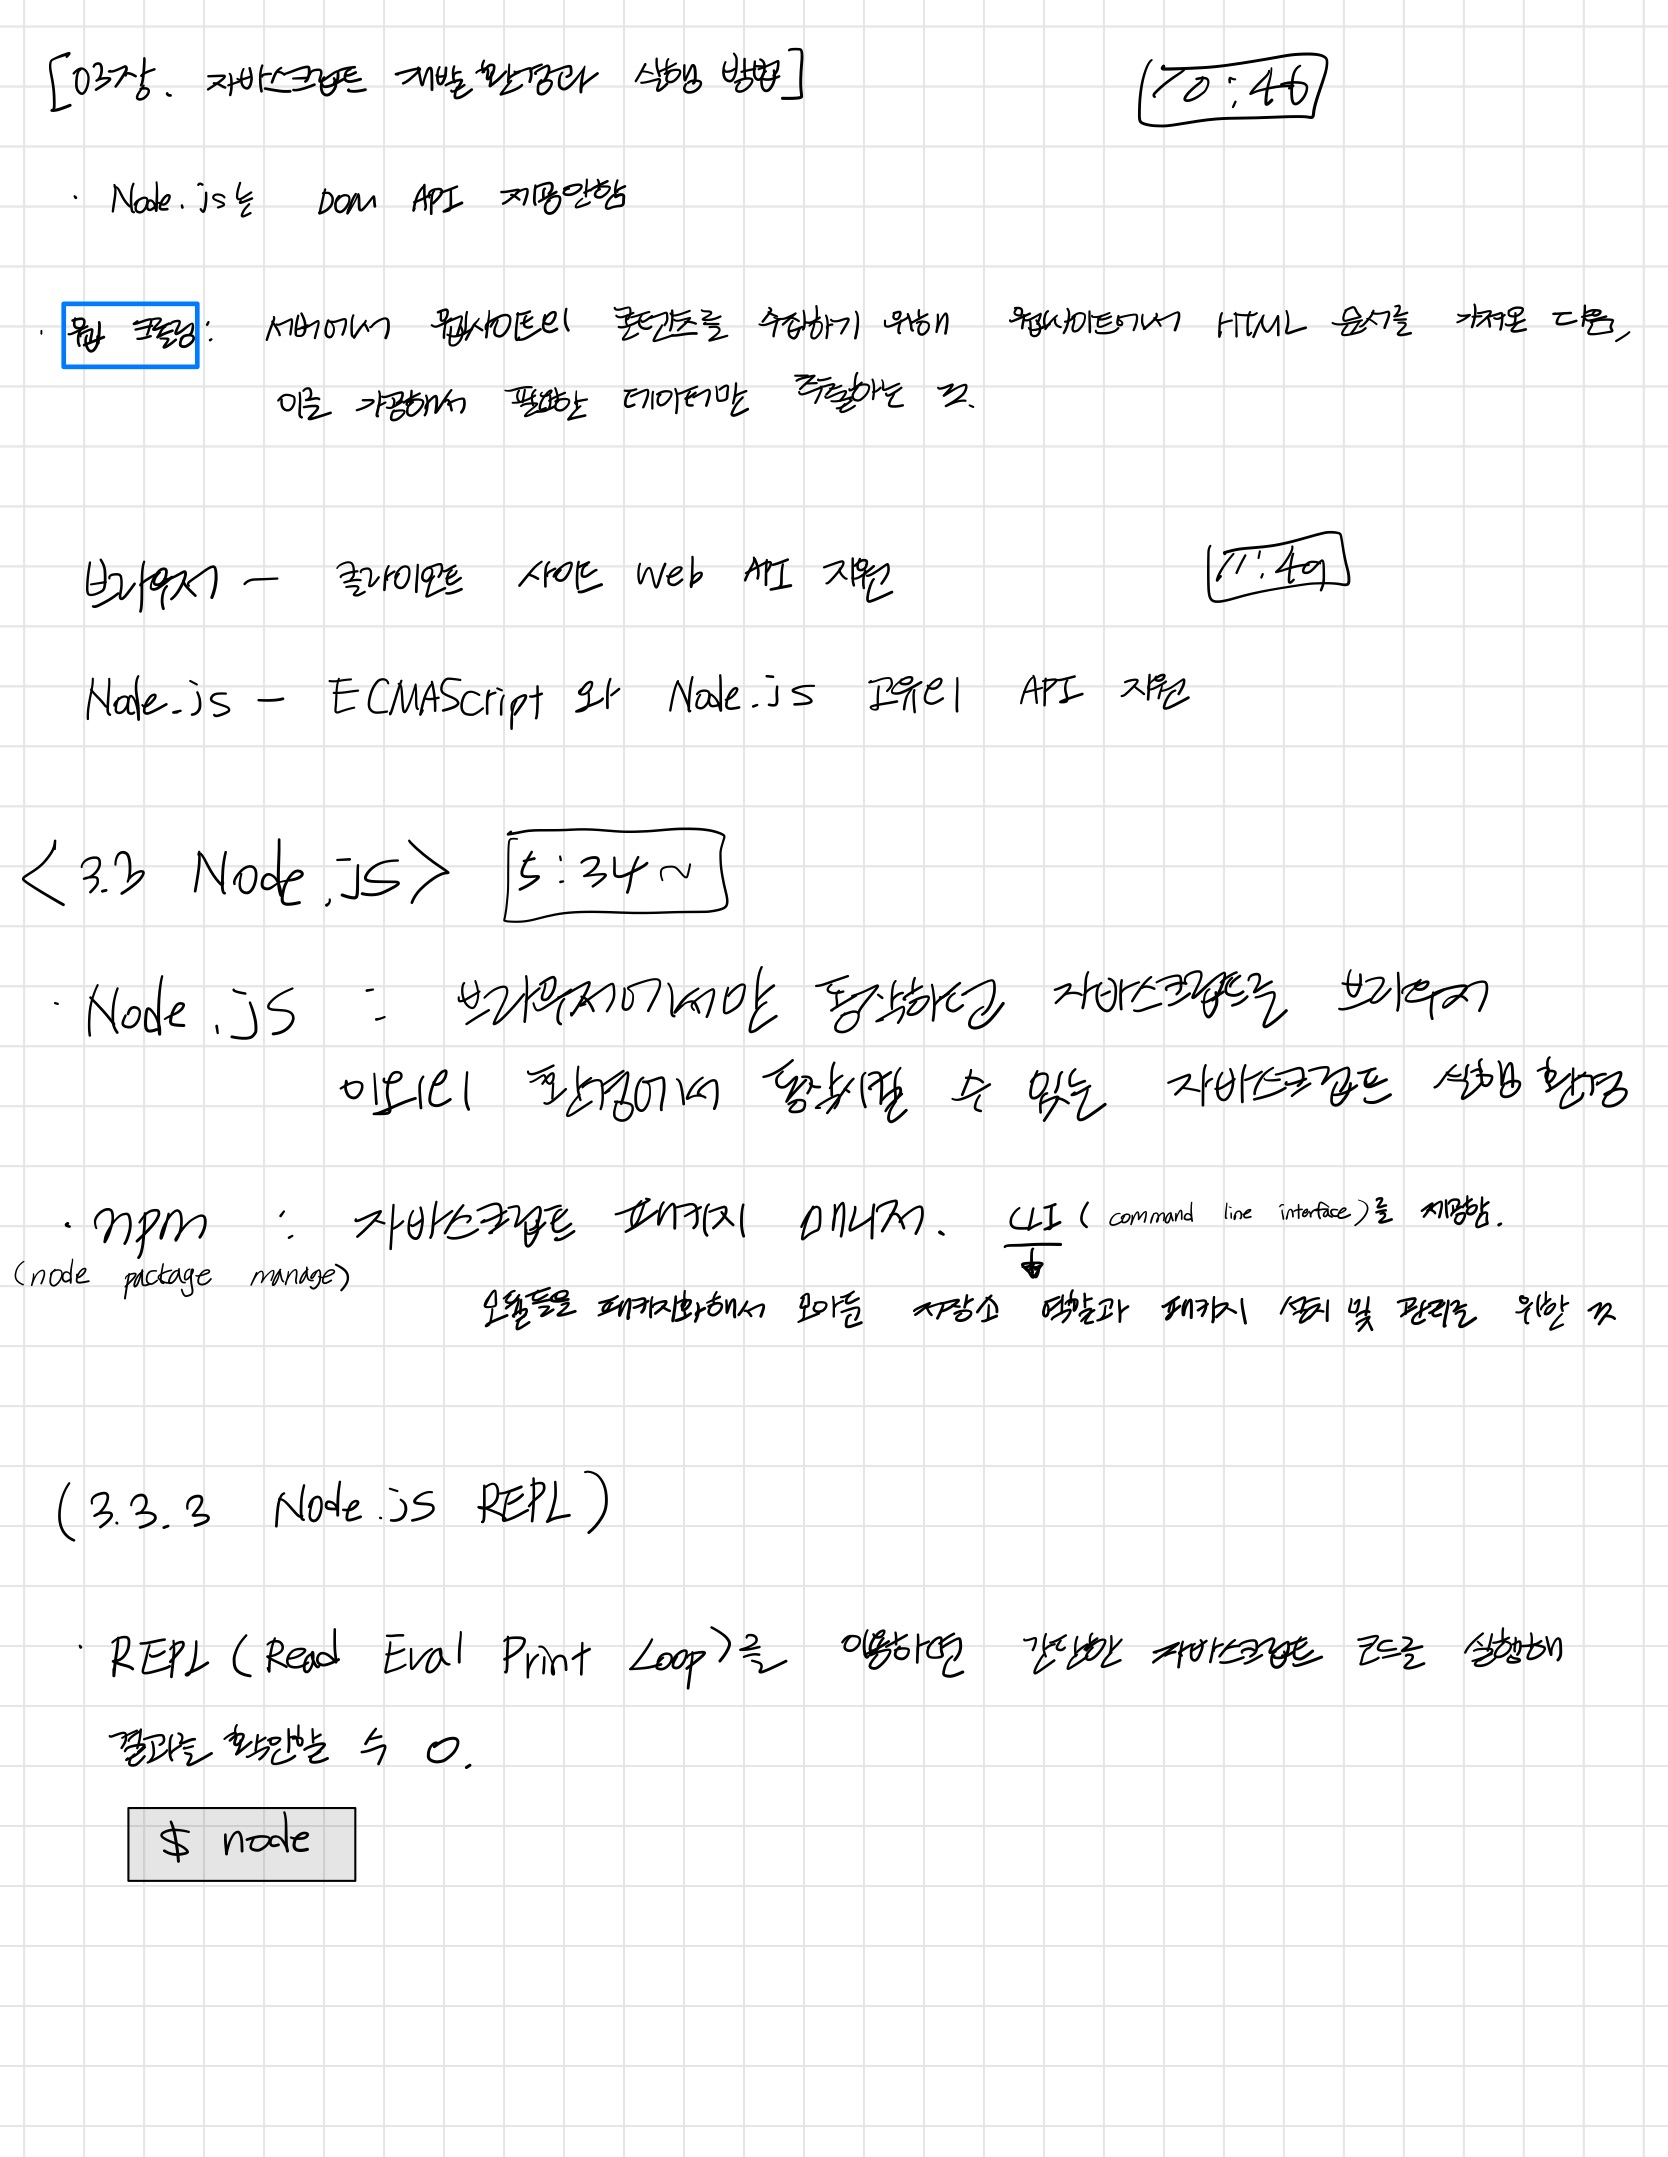 [03장. 자바스크립트 개발 환경과 실행 방법]
10:46
· Node.js는 DOM API 제공안함
· 웹 크롤링: 서버에서 웹사이트의 콘텐츠를 수집하기 위해 웹사이트에서 HTML 문서를 가져온 다음,
이를 가공해서 필요한 데이터만 추출하는 것.
11:49
브라우저 – 클라이언트 사이드 Web API 지원
Node.js – ECMAScript 와 Node.js 고유의 API 지원
<3.3 Node.js> 5:34~
· Node.js : 브라우저에서만 동작하던 자바스크립트를 브라우저
이외의 환경에서 동작시킬 수 있는 자바스크립트 실행 환경
· npm : 자바스크립트 패키지 매니저. CLI (command line interface)를 제공함.
(node package manage)
모듈들을 패키지화해서 모아둔 저장소 역할과 패키지 설치 및 관리를 위한 것
(3.3.3 Node.js REPL)
· REPL (Read Eval Print Loop)를 이용하면 간단한 자바스크립트 코드를 실행해
결과를 확인할 수 O.
$ node